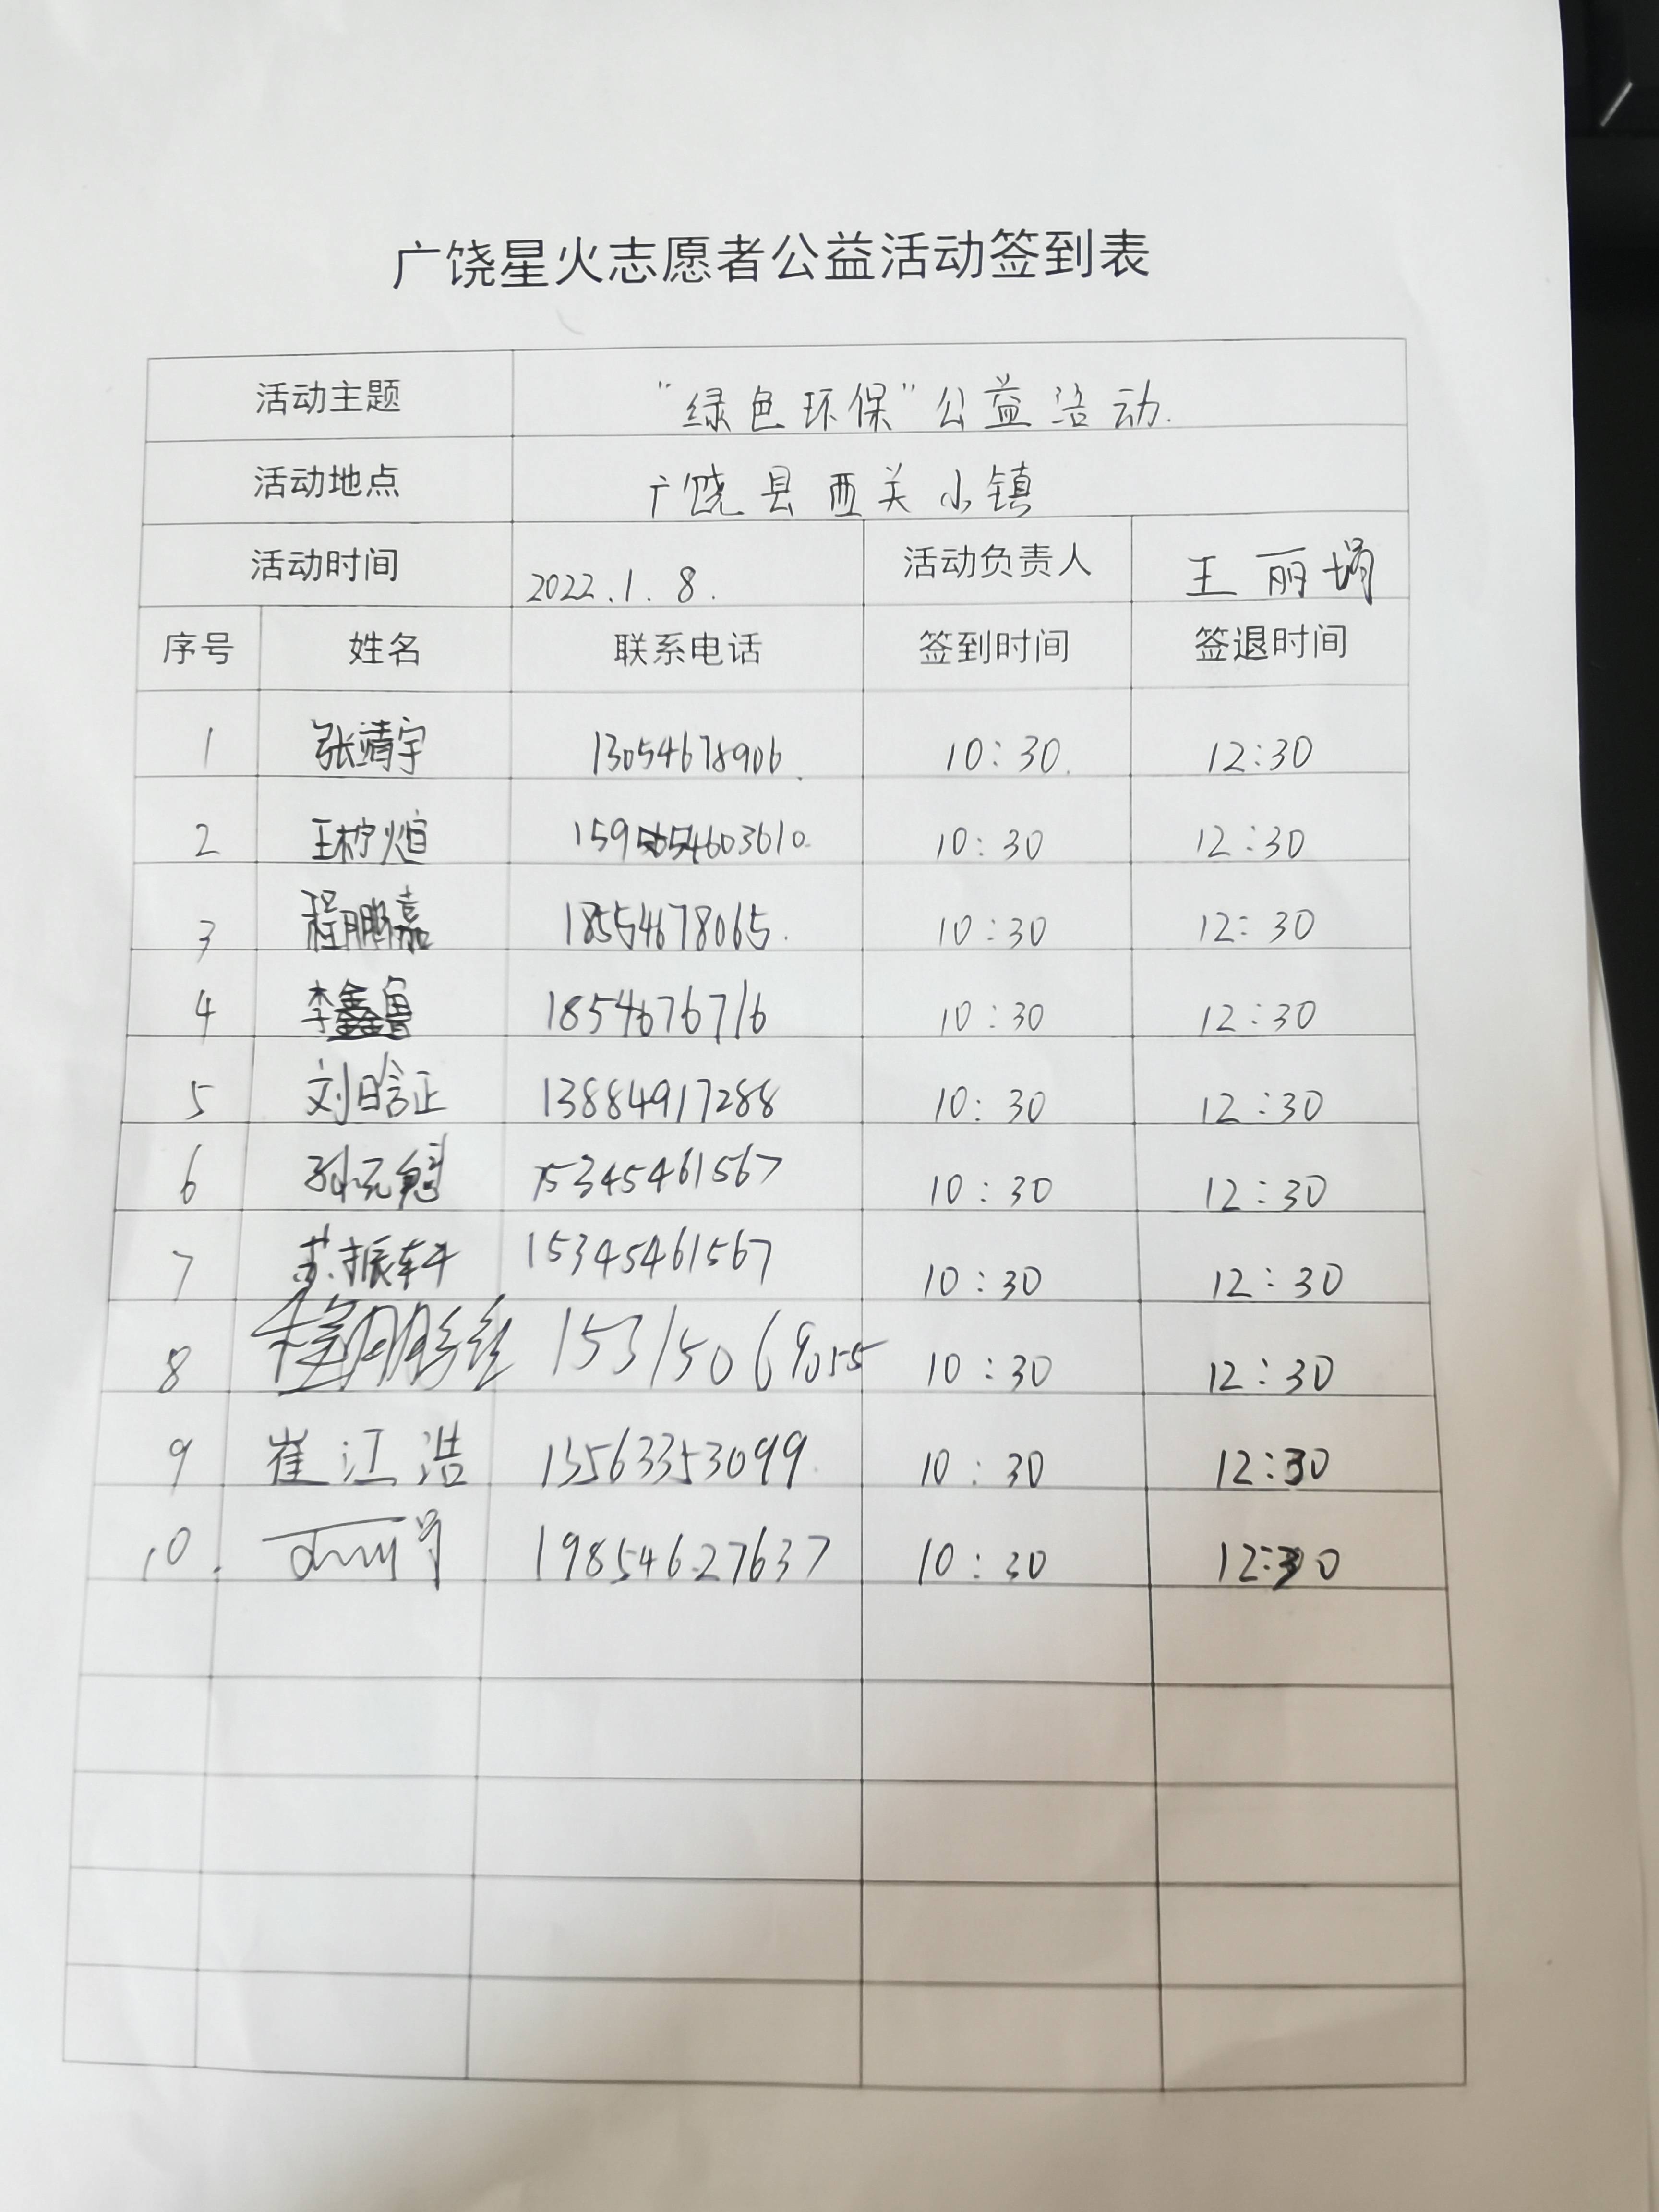 广饶星火志愿者公益活动签到表
活动主题 "绿色环保"公益活动.
活动地点 广饶县西关小镇
活动时间 2022.1.8. 活动负责人 王丽娟
序号 姓名 联系电话 签到时间 签退时间
1 张靖宇 13054678906. 10:30. 12:30
2 王柠煊 10:30 12:30
3 程鹏嘉 18554678065. 10:30 12:30
4 李鑫鲁 1854676716 10:30 12:30
5 刘晗正 13884917288 10:30 12:30
6 孙元魁 15345461567 10:30 12:30
7 苏振轩 15345461567 10:30 12:30
8 15315069055 10:30 12:30
9 崔江浩 13563353099. 10:30 12:30
10. 19854627637 10:30 12:30